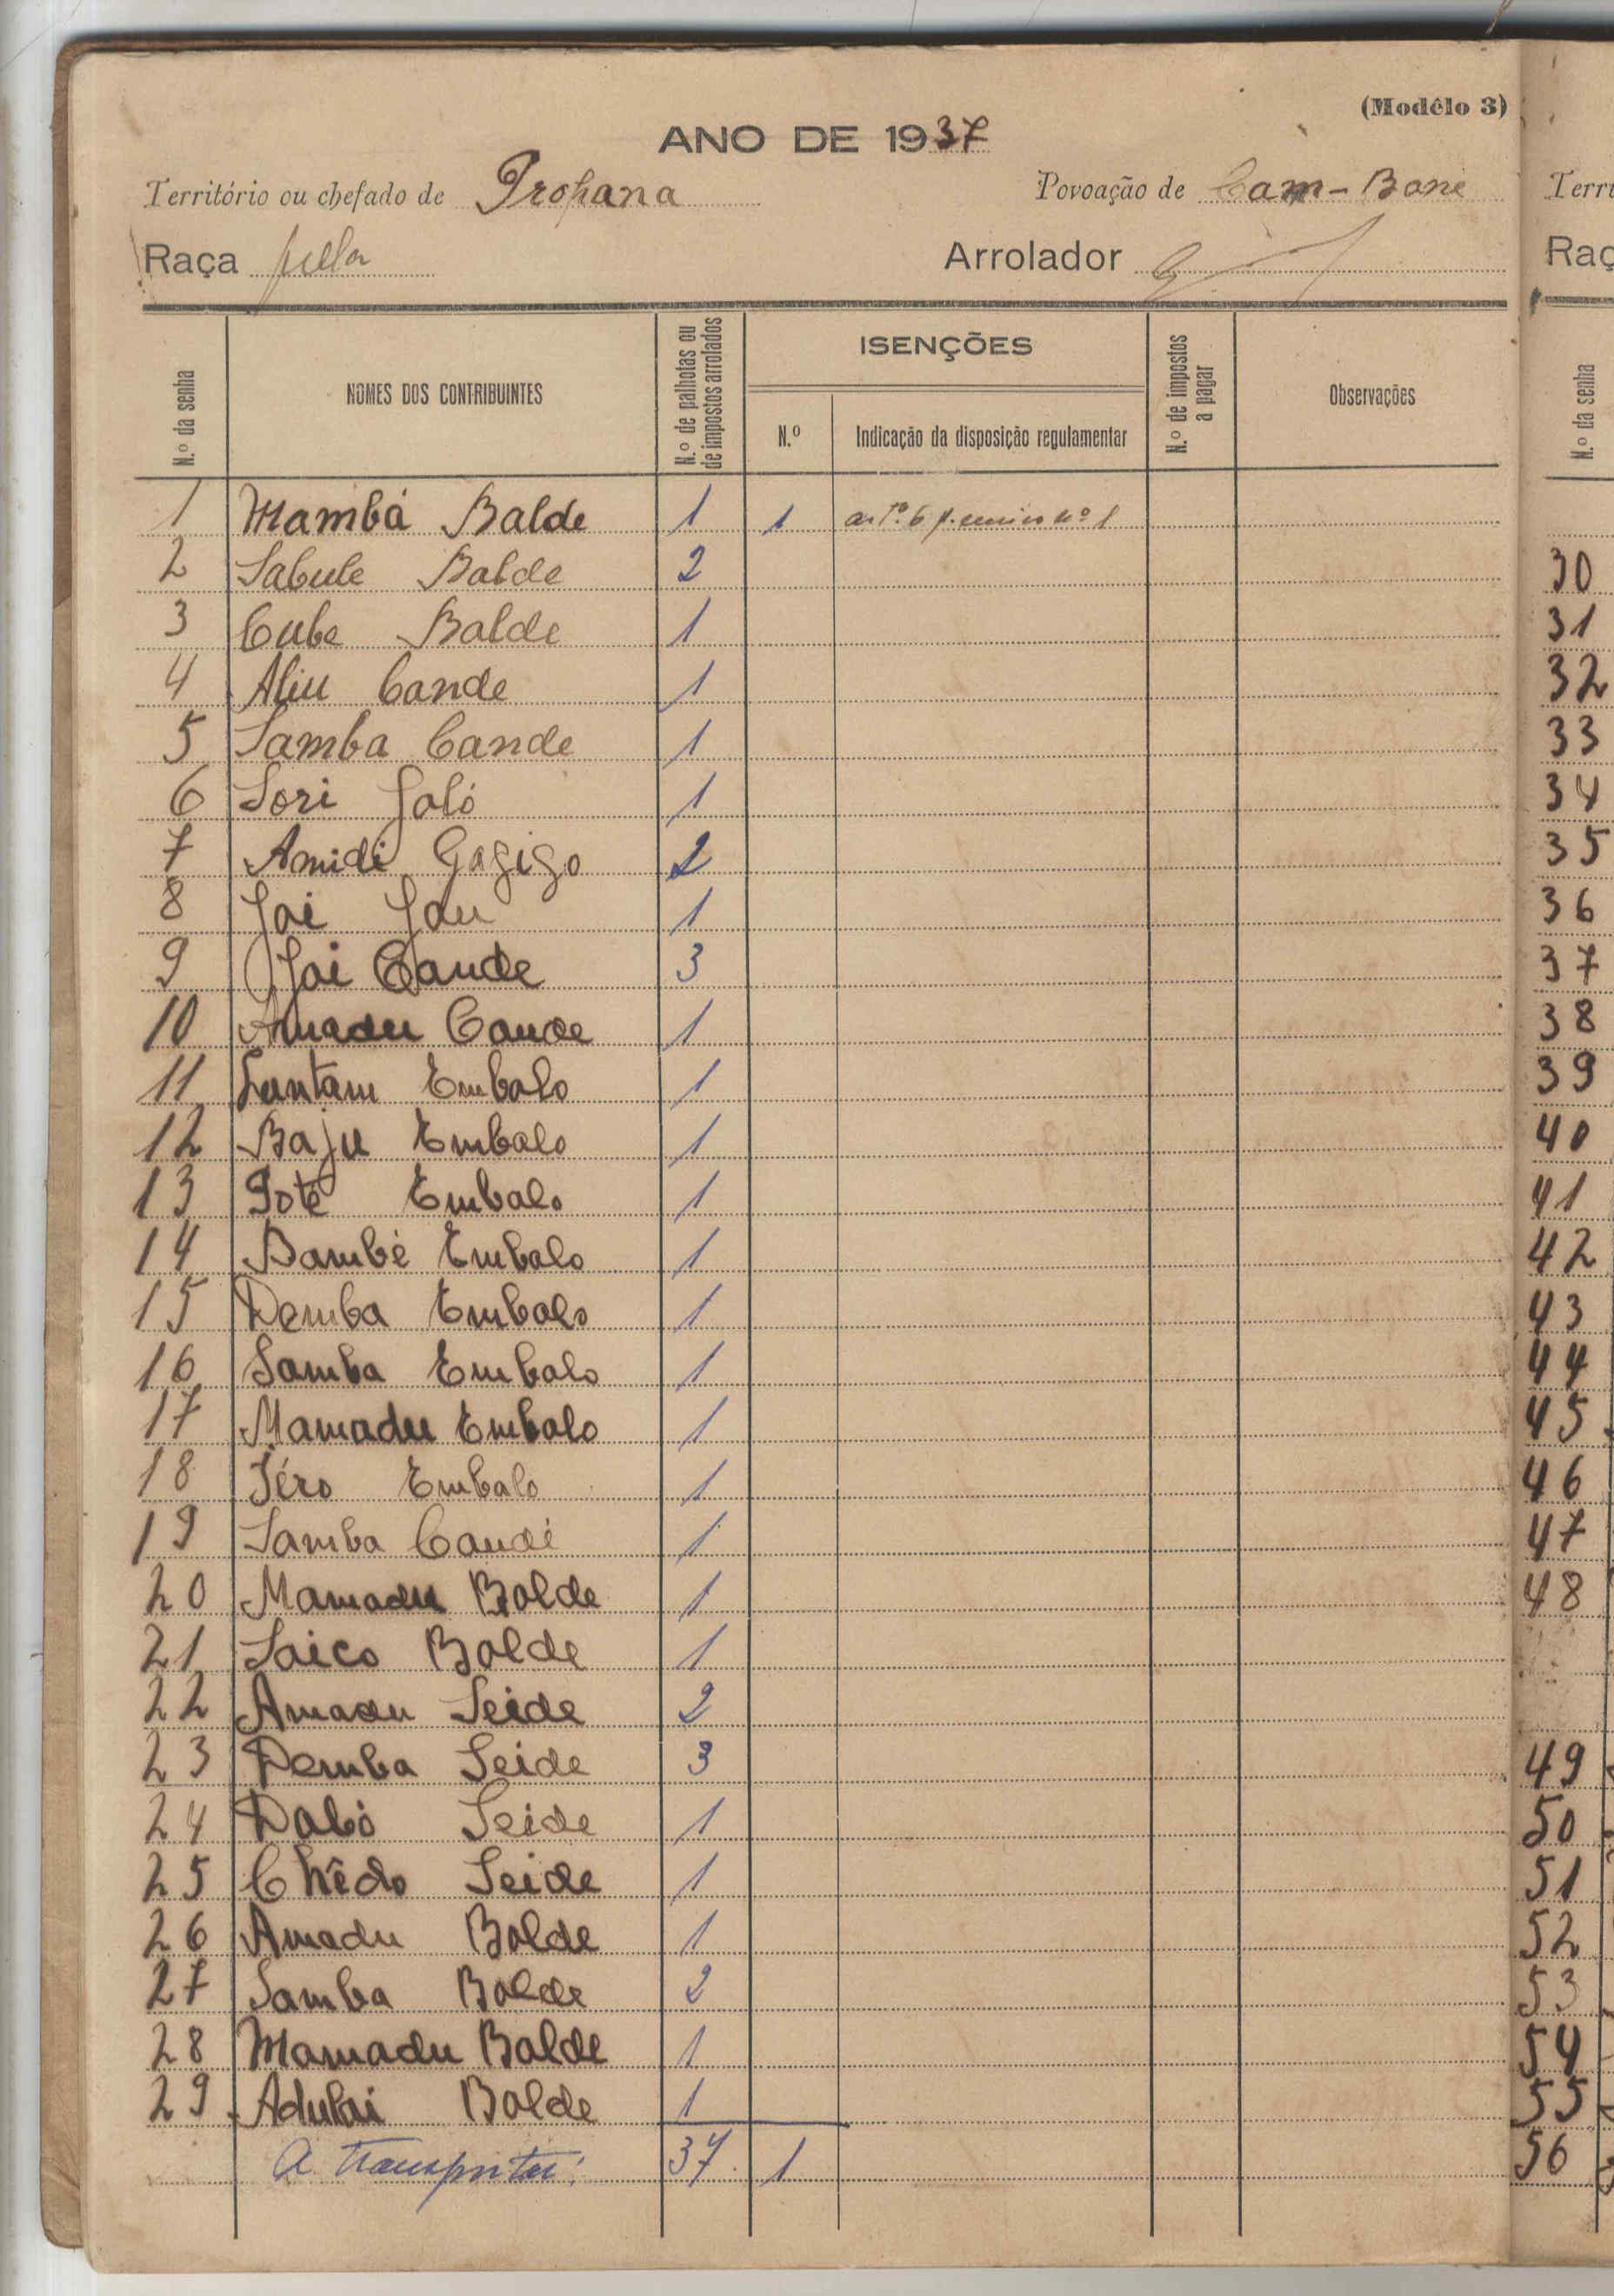 (Modêlo 3)
ANO DE 1937
Território ou chefado de Propana Povoação de Cam-Bane
Raça fulla Arrolador
N.º da senha NOMES DOS CONTRIBUINTES N.º de palhotas ou de impostos arrolados ISENÇÕES N.º Indicação da disposição regulamentar N.º de impostos a pagar Observações
1 Mambá Balde 1 1 artº. 6 nº 1
2 Sabule Balde 2
3 Cube Balde 1
4 Aliu Cande 1
5 Samba Cande 1
6 Sori Jaló 1
7 Amidi Gagigo 2
8 Jai Jau 1
9 Jai Cande 3
10 Amadu Cande 1
11 Santam Embalo 1
12 Baju Embalo 1
13 Poté Embalo 1
14 Bambé Embalo 1
15 Demba Embalo 1
16 Samba Embalo 1
17 Mamadu Embalo 1
18 Iéro Embalo 1
19 Samba Candé 1
20 Mamadu Balde 1
21 Saico Balde 1
22 Amadu Seide 2
23 Demba Seide 3
24 Dabó Seide 1
25 Chêdo Seide 1
26 Amadu Balde 1
27 Samba Balde 2
28 Mamadu Balde 1
29 Adulai Balde 1
A transportar: 37 1
Terri
Raç
N.º da senha
30
31
32
33
34
35
36
37
38
39
40
41
42
43
44
45
46
47
48
49
50
51
52
53
54
55
56